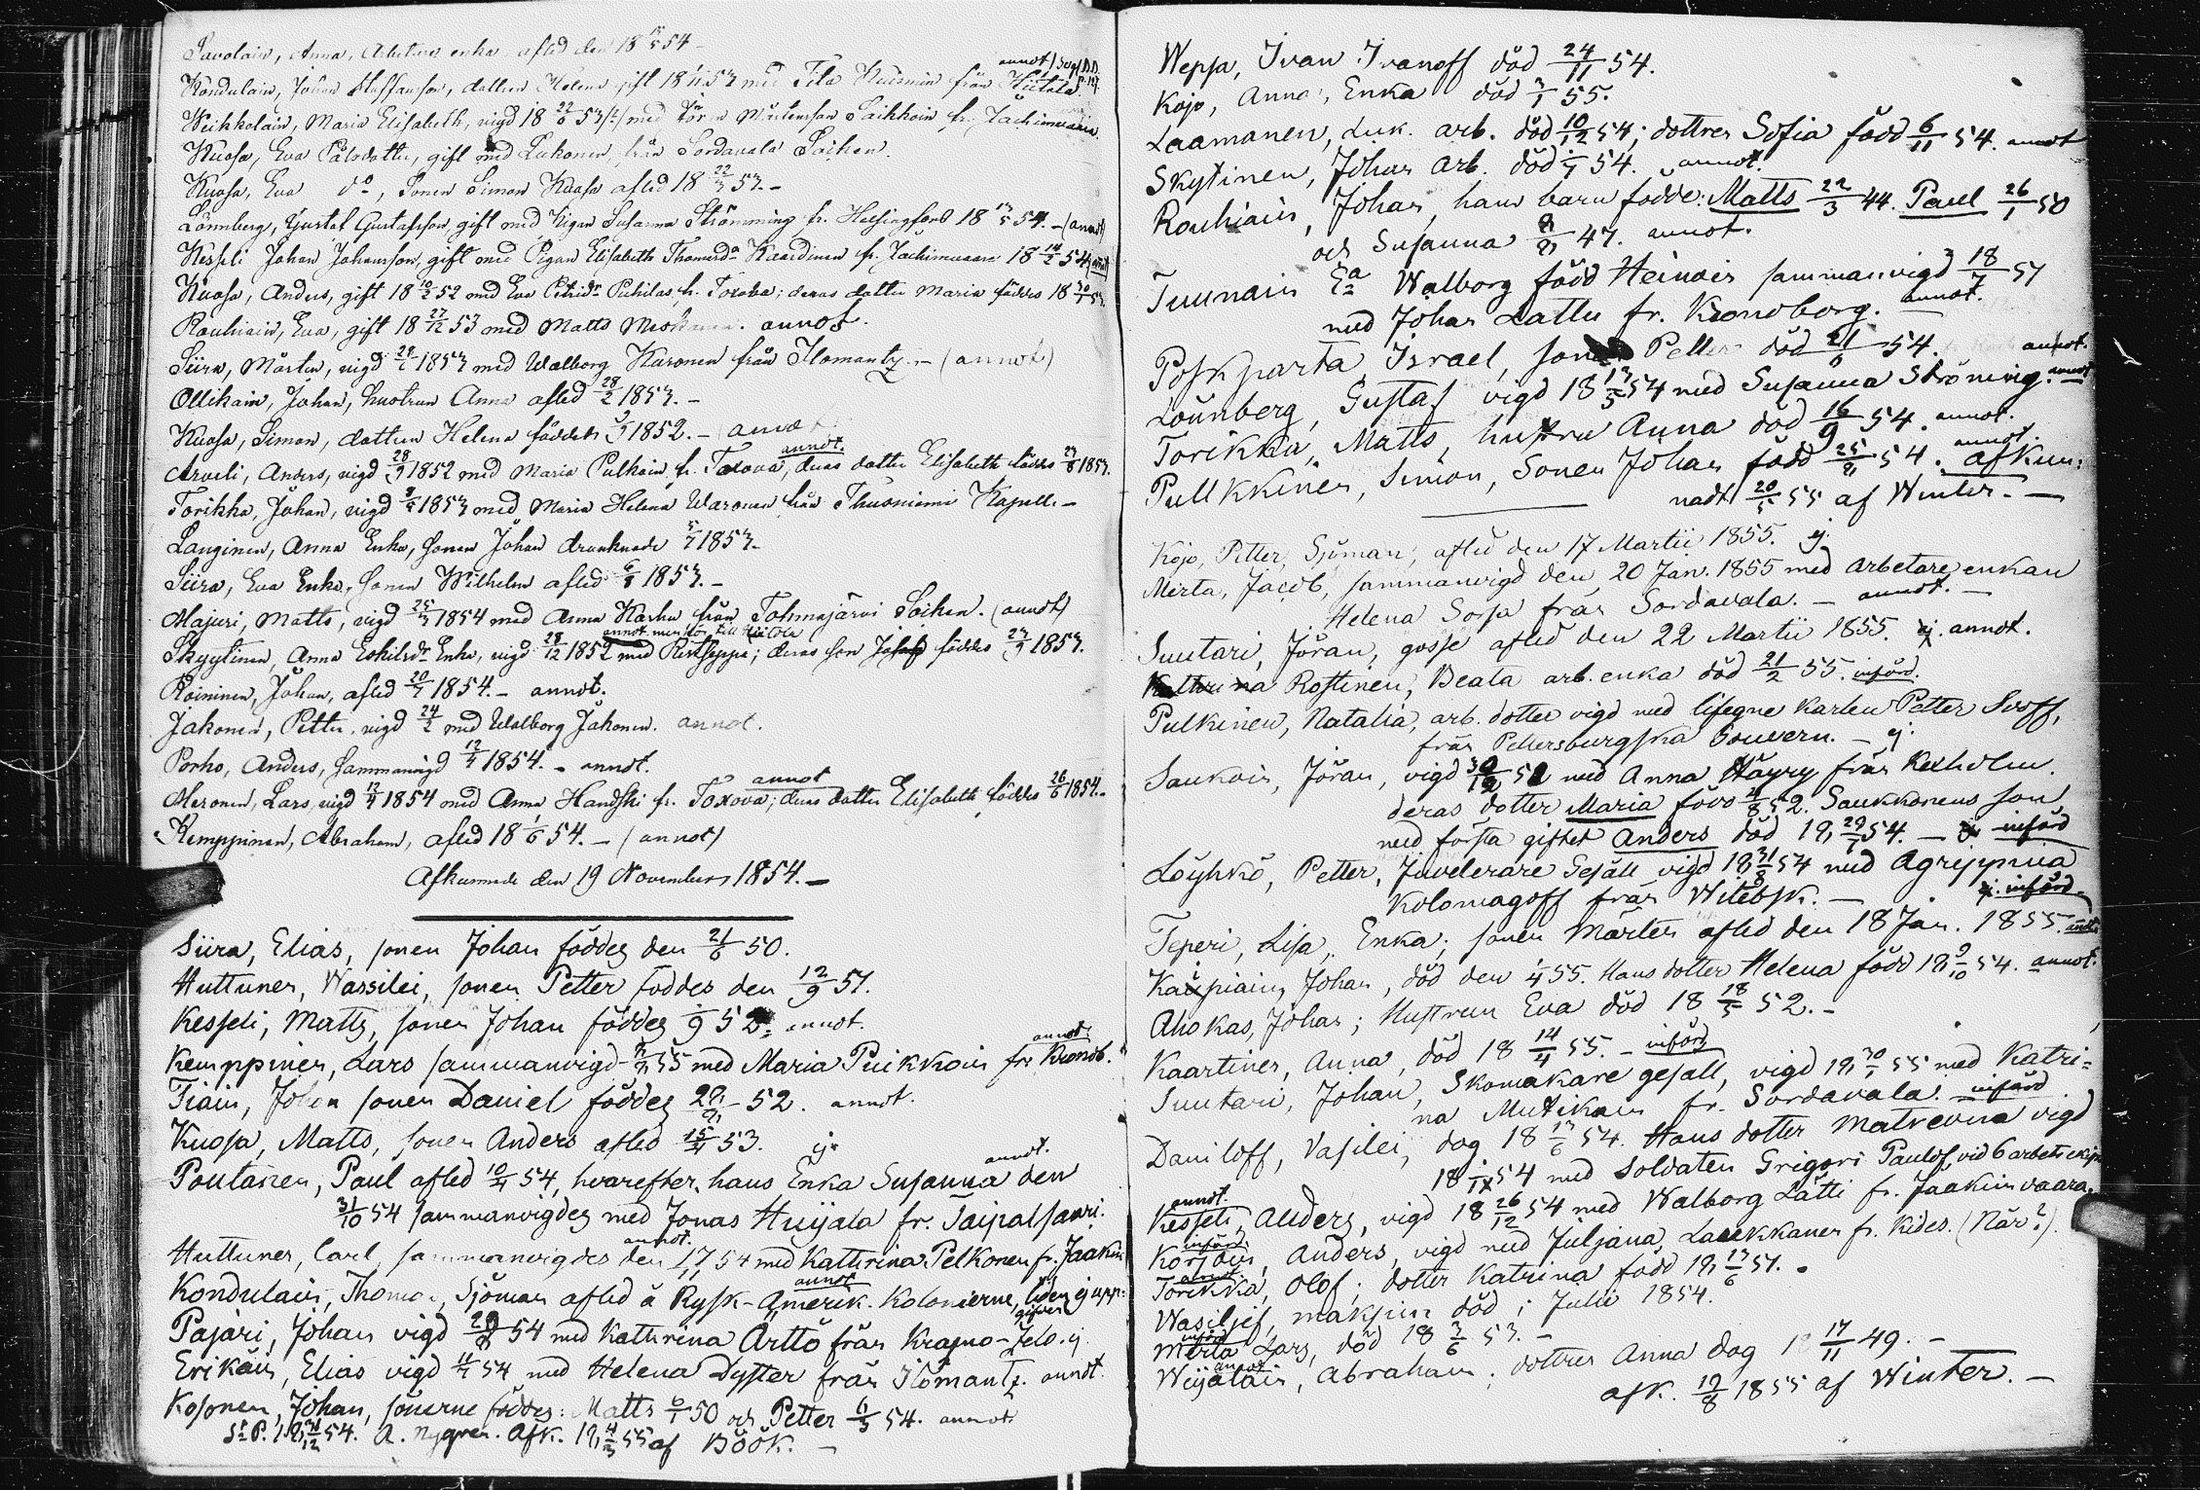 Savolain, Anna, Arbetare enka, afled den 18 54.
Kondulain, Johan Staffansson, dottren Helena gift 18 53 med från Hiitola annot
Weikkolain, Maria Elisabeth, vigd 18 22/6 53 med Göran Mårtensson Laikkoin fr. Jackimvaara
Kuosa, Eva Pålsdotter, gift med Lukonen från Sordavala Socken.
Kuosa, Eva do, Sonen Simon Kuosa afled 18 22/3 53.-
Lönnberg, Gustaf Gustafsson, gift med Pigan Susanna Strömming fr. Helsingfors 18 13/5 54. - (annot)
Kesseli Johan Johansson, gift med Pigan Elisabeth Thomasda Kaardinen fr. Jackimvaara 18 14/2 54 (annot)
Kuosa, Anders, gift 18 10/2 52 med Eva Petrido Puhilas fr. Toxova; deras dotter Maria föddes 18
Rauhiain, Eva, gift 18 27/12 53 med Matts annot.
Siira, Mårten, vigd 1853 med Walborg Karonen från Ilomantz. - (annot)
Ollikain, Johan, hustrun Anna afled 28/2 1853.-
Kuosa, Simon, dottren Helena föddes 1852. - annot
Arveli, Anders, vigd 28/9 1852 med Maria Pulkain fr. Toxova, annot. deras dotter Elisabeth föddes 1853.
Torikka, Johan, vigd 1853 med Maria Helena Waronen från Thuoniemi Kapell. -
Langinen, Anna Enka, Sonen Johan drunknade 5/7 1853.-
Siira, Eva Enka, Sonen Wilhelm afled 6/8 1853.-
Majuri, Matts, vigd 25/3 1854 med Anna Karhu från Tohmajärvi Socken. (annot)
Skyttinen, Anna Eskilsdr Enka, vigd 28/12 1852 med annot. men hör till Hiitola deras son Johan föddes 1853.
Roininen, Johan, afled 20/7 1854.- annot.
Jakonen, Petter, vigd 24/2 med Walborg Jakonen. annot.
Porho, Anders, Sammanvigd 12/4 1854. - annot.
Meronen, Lars, vigd 17/4 1854 med Anna Handski fr. Toxova; annot deras dotter Elisabeth föddes 26/6 1854.-
Kemppinen, Abraham, afled 18 1/6 54. - (annot)
Afkunnade den 19 November 1854. -
Siira, Elias, sonen Johan föddes den 21/6 50.
Huttunen, Wassilei, sonen Petter föddes den 12/9 51.
Kesseli, Matts, sonen Johan föddes 52. annot.
Kemppinen, Lars sammanvigd 55 med Maria Puikkoin fr Kronob. annot.
Tiain, Johan sonen Daniel föddes 52. annot.
Kuosa, Matts, sonen Anders afled 15/4 53. ej.
Poutanen, Paul afled 10/4 54, hvarefter hans Enka Susanna den annot.
31/10 54 sammanvigdes med Jonas Huijala fr. Taipalsaari.
Huttunen, Carl, sammanvigdes den annot. 17/11 54 med Kathrina Pelkonen fr. Jaakim
Kondulain, Thomas, Sjöman afled å Rysk-Amerik. annot Kolonierne, tiden ej upp:
gifven
Pajari, Johan vigd 54 med Kathrina Arttö från Krasno-Selo. ej
Erikäin, Elias vigd 54 med Helena Dyster från Ilomantz. annot.
Kosonen, Johan, sönerne föddes: Matts 6/1 50 och Petter 6/3 54. annot.
St P. 18 31/12 54. A. Nygren. Afk. 18 4/3 55 af Böök. -
Wepsa, Ivan Ivanoff död 24/11 54.
Kojo, Anna, Enka död 3/1 55.
Laamanen, Luk. arb. död 10/12 54; dottren Sofia född 6/11 54. annot
Skytinen, Johan arb. död 54. annot.
Rouhiain, Johan, hans barn födde: Matts 22/3 44. Paul 26/1 50
och Susanna 47. annot.
Tuunain Ea Walborg född Heinoin sammanvigd 18/7 51
med Johan Lattu fr. Kronoborg. annot.
Poskiparta, Israel, son Petter död 21/6 54. annot.
Lönnberg, Gustaf vigd 18 13/5 54 med Susanna Ströming. annot
Torikka, Matts, hustru Anna död 16/9 54. annot.
Pullkkinen, Simon, Sonen Johan född 54. annot. afkun:
nadt 20/5 55 af Winter. -
Kojo, Petter, Sjöman, afled den 17 Martii 1855. ej.
Mirta, Jacob, sammanvigd den 20 Jan. 1855 med arbetare enkan
Helena Sorsa från Sordavala. - annot. -
Suutari, Jöran, gosse afled den 22 Martii 1855. ej. annot.
Rostinen, Beata arb. enka död 21/2 55. införd.
Pulkinen, Natalia, arb. dotter vigd med lifegne karlen Petter
från Petersburgska Gouvern. - ej.
Saukoin, Jöran, vigd 30/12 51 med Anna Häyry från Kexholm.
deras dotter Maria född 52. Saukkonens son
med första giftet Anders död 18 29/1 54. - införd
Löyhkö, Petter, Juvelerare Gesäll vigd 18 31/8 54 med Agreppina
Kolomagoff från Witebsk. - införd.
Teperi, Lisa, Enka; sonen Mårten afled den 18 Jan. 1855.
Kaupiain, Johan, död den 1/4 55. Hans dotter Helena född 18 9/10 54. annot.
Ahokas, Johan; Hustrun Eva död 18 18/5 52.-
Kaartinen, Anna, död 18 14/4 55. - införd
Suutari, Johan, Skomakare gesäll, vigd 18 30/1 55 med Katri=
na Mutikain fr. Sordavala. införd
Daniloff, Vasilei, dog 18 13/6 54. Hans dotter Matrevna vigd
18 54 med soldaten Grigori Paulof vid 6 arbets
annot.
Kesseli, Anders, vigd 18 26/12 54 med Walborg Lätti fr. Jaakimvaara.
införd
Korjoin, Anders, vigd med Juljana Laukkanen fr. Kides. (När?)
annot
Torikka, Olof; dotter Katrina född 18 13/6 51.
Wasiljef, Maksim död i Julii 1854.
införd
Mirta Lars, död 18 3/6 53. -
annot
Weijalain, Abraham; dottren Anna dog 17/11 49. -
afk. 19/8 1855 af Winter. -